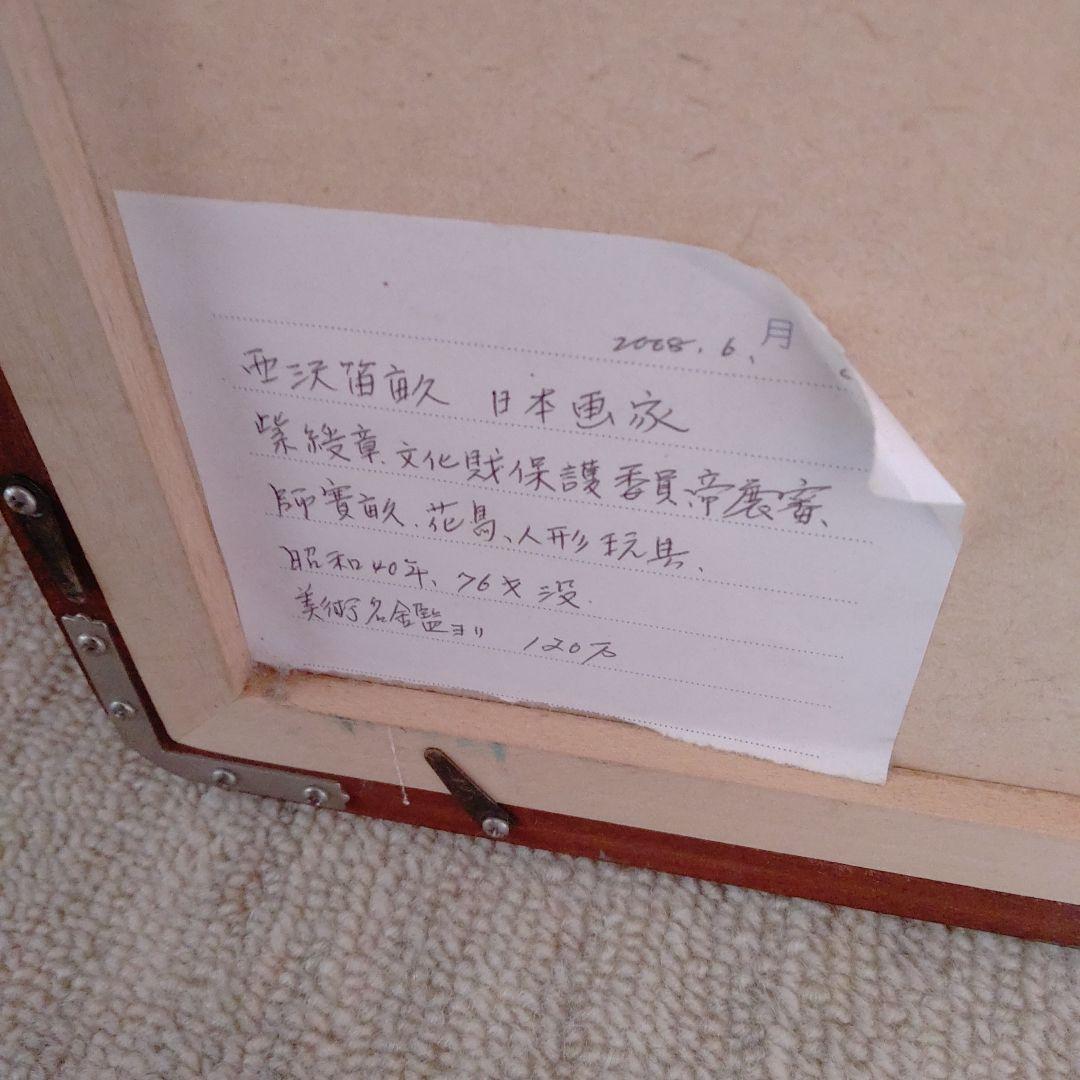 2008. 6. 月
西沢笛畝 日本画家
紫綬章、文化財保護委員、帝展審、
師寳畝、花鳥、人形玩具、
昭和40年、76才没
美術名鑑ヨリ 120万